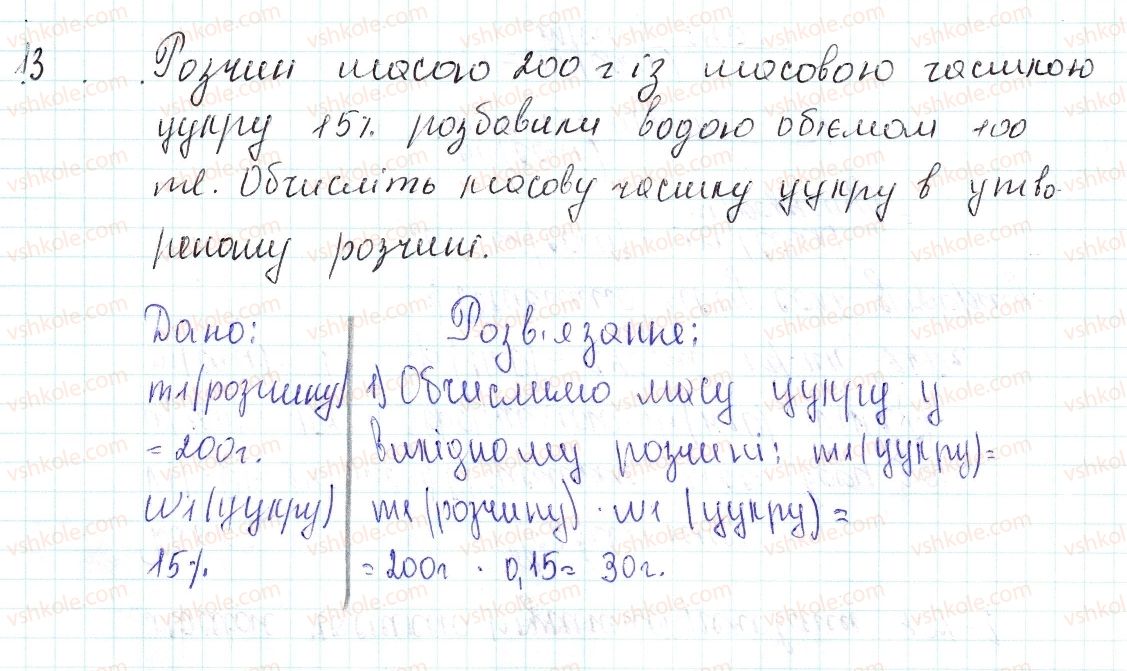 13 Розчин масою 200 г із масовою часткою
цукру 15% розбавили водою об'ємом 100
мл. Обчисліть масову частку цукру в утво-
реному розчині.
Дано: Розв'язання:
m1(розчину) 1) Обчислимо масу цукру у
= 200г. вихідному розчині: m1(цукру)=
W1(цукру) m1(розчину) · w1 (цукру) =
15% = 200г · 0,15= 30г.